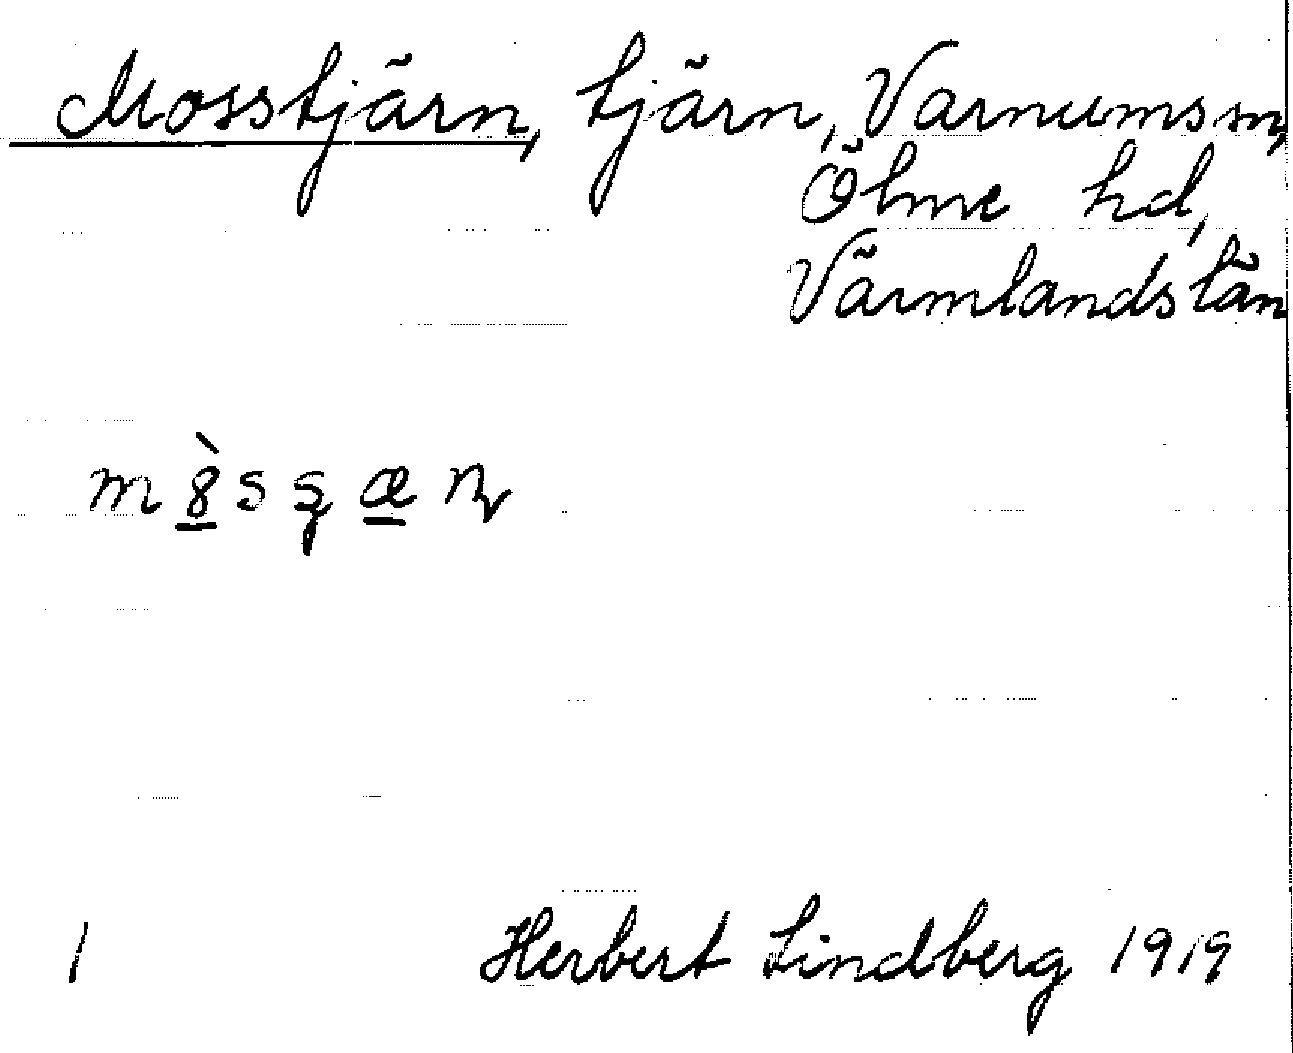 Mosstjärn, tjärn, Varnums sn,
Ölme hd,
Värmlands län
m 8̲̀ s ʂ æ̲ ɳ
1 Herbert Lindberg 1919